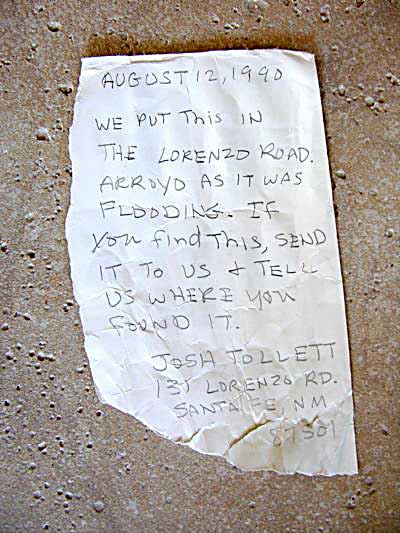 AUGUST 12, 1990
WE PUT THIS IN
THE LORENZO ROAD.
ARROYO AS IT WAS
FLOODING. If
you find THIS, SEND
IT TO US & TELL
US WHERE you
FOUND IT.
JOSH TOLLETT
131 LORENZO RD.
SANTA FE, NM
87501